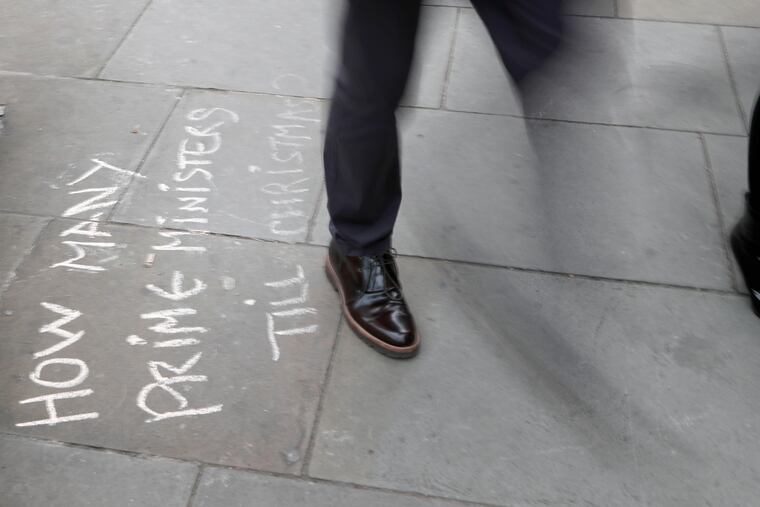 HOW MANY
PRIME MINISTERS
TILL CHRISTMAS?